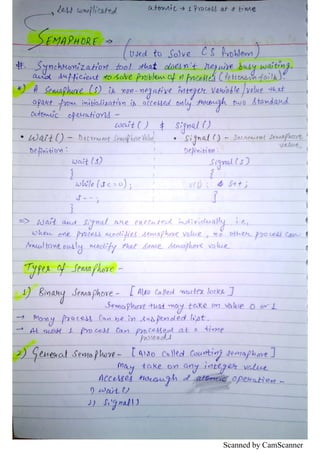 less complicated
atomic → 1 process at a time
SEMAPHORE → (Used to Solve CS Problem)
#. Synchronization tool that doesn't require busy waiting
and sufficient to solve problem of n processes (Peterson fails)
•) A Semaphore (S) is non-negative integer variable/value that
apart from initialization is accessed only through two standard
atomic operations -
wait() & signal()
• wait() - Decrement Semaphore Value • Signal() - Increment Semaphore value
Definition: Definition:
wait(S) Signal(S)
{ {
while(S<=0); S++;
S--; }
}
⇒ Wait and Signal are executed individually i.e,
when one process modifies semaphore value, no other process can
simultaneously modify that same semaphore value
Types of Semaphore -
1) Binary Semaphore - [Also called mutex locks]
Semaphore that may take on value 0 or 1
→ Many process can be in suspended list.
→ At most 1 process can proceed at a time
2) General Semaphore - [Also called Counting semaphore]
May take on any integer value
Accesses through 2 atomic operation -
1) wait()
2) Signal()
Scanned by CamScanner